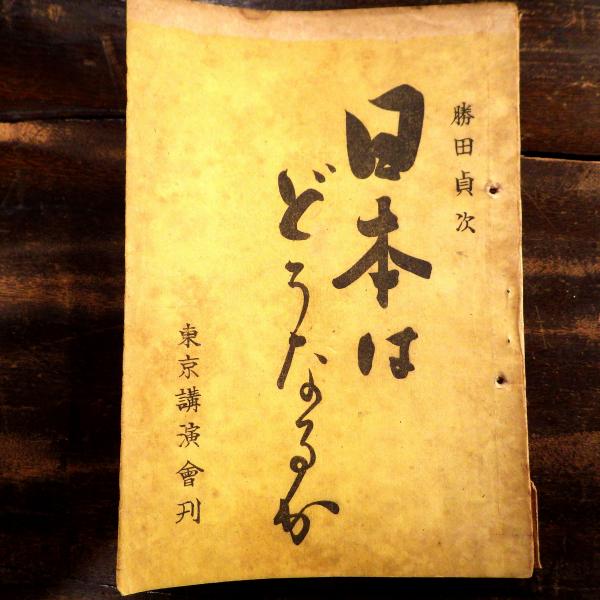 勝田貞次
日本は
どうなるか
東京講演會刊